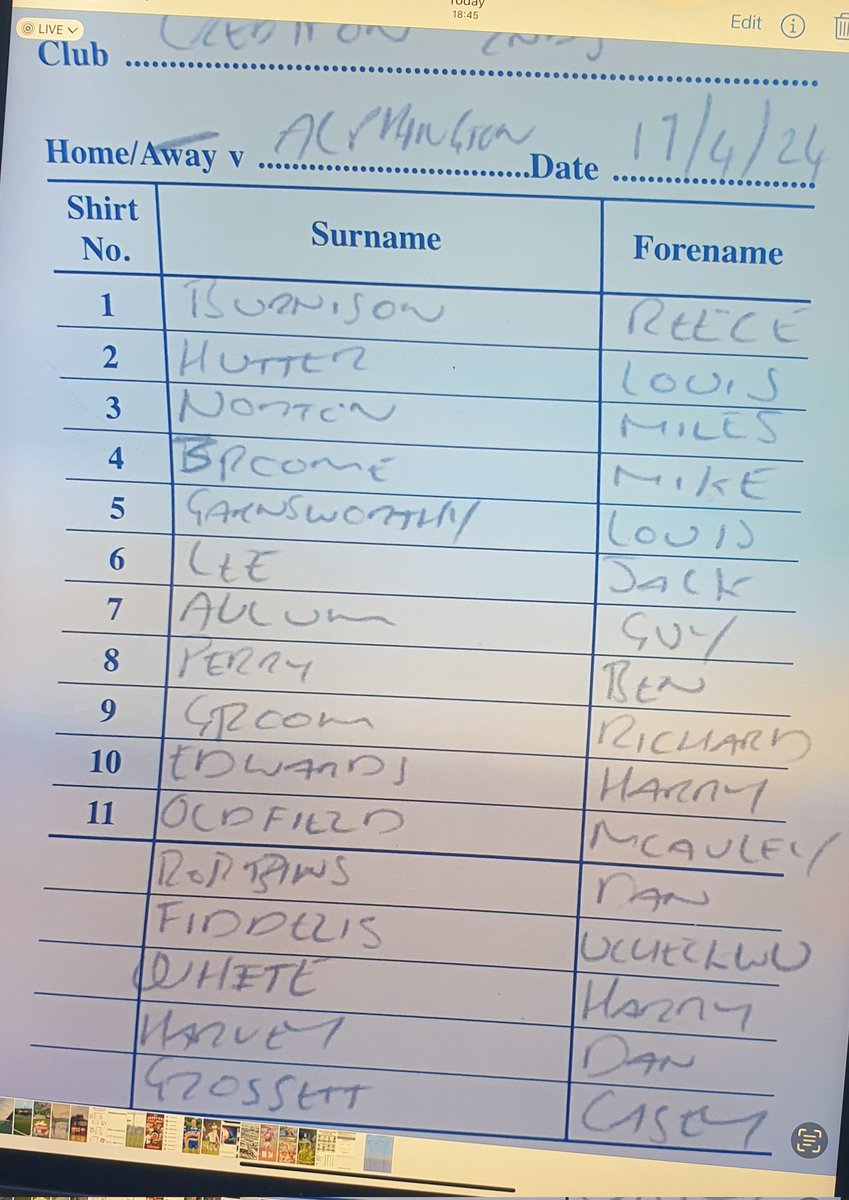 Today
18:45
LIVE
Edit
Club CREDITON 2NDS
Home/Away v ALPHINGTON Date 17/4/24
Shirt No. Surname Forename
1 BURNISON REECE
2 HUTTER LOUIS
3 NORTON MILES
4 BROOME MIKE
5 GARNSWORTHY LOUIS
6 LEE JACK
7 AULUM GUY
8 PERRY BEN
9 GROOM RICHARD
10 EDWARDS HARRY
11 OLDFIELD MCAULEY
ROBBINS DAN
FIDDELIS
WHITE HARRY
HARVEY DAN
GROSSETT CASEY